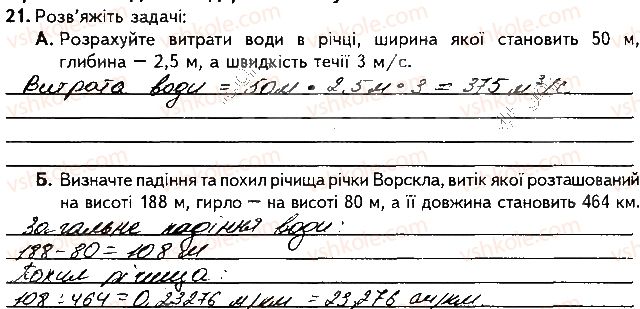 21. Розв'яжіть задачі:
А. Розрахуйте витрати води в річці, ширина якої становить 50 м,
глибина — 2,5 м, а швидкість течії 3 м/с.
Витрата води = 50м • 2,5м • 3 = 375 м³/с.
Б. Визначте падіння та похил річища річки Ворскла, витік якої розташований
на висоті 188 м, гирло — на висоті 80 м, а її довжина становить 464 км.
Загальне падіння води:
188-80=108 м
Похил річища:
108÷464=0,23276 м/км = 23,276 см/км.